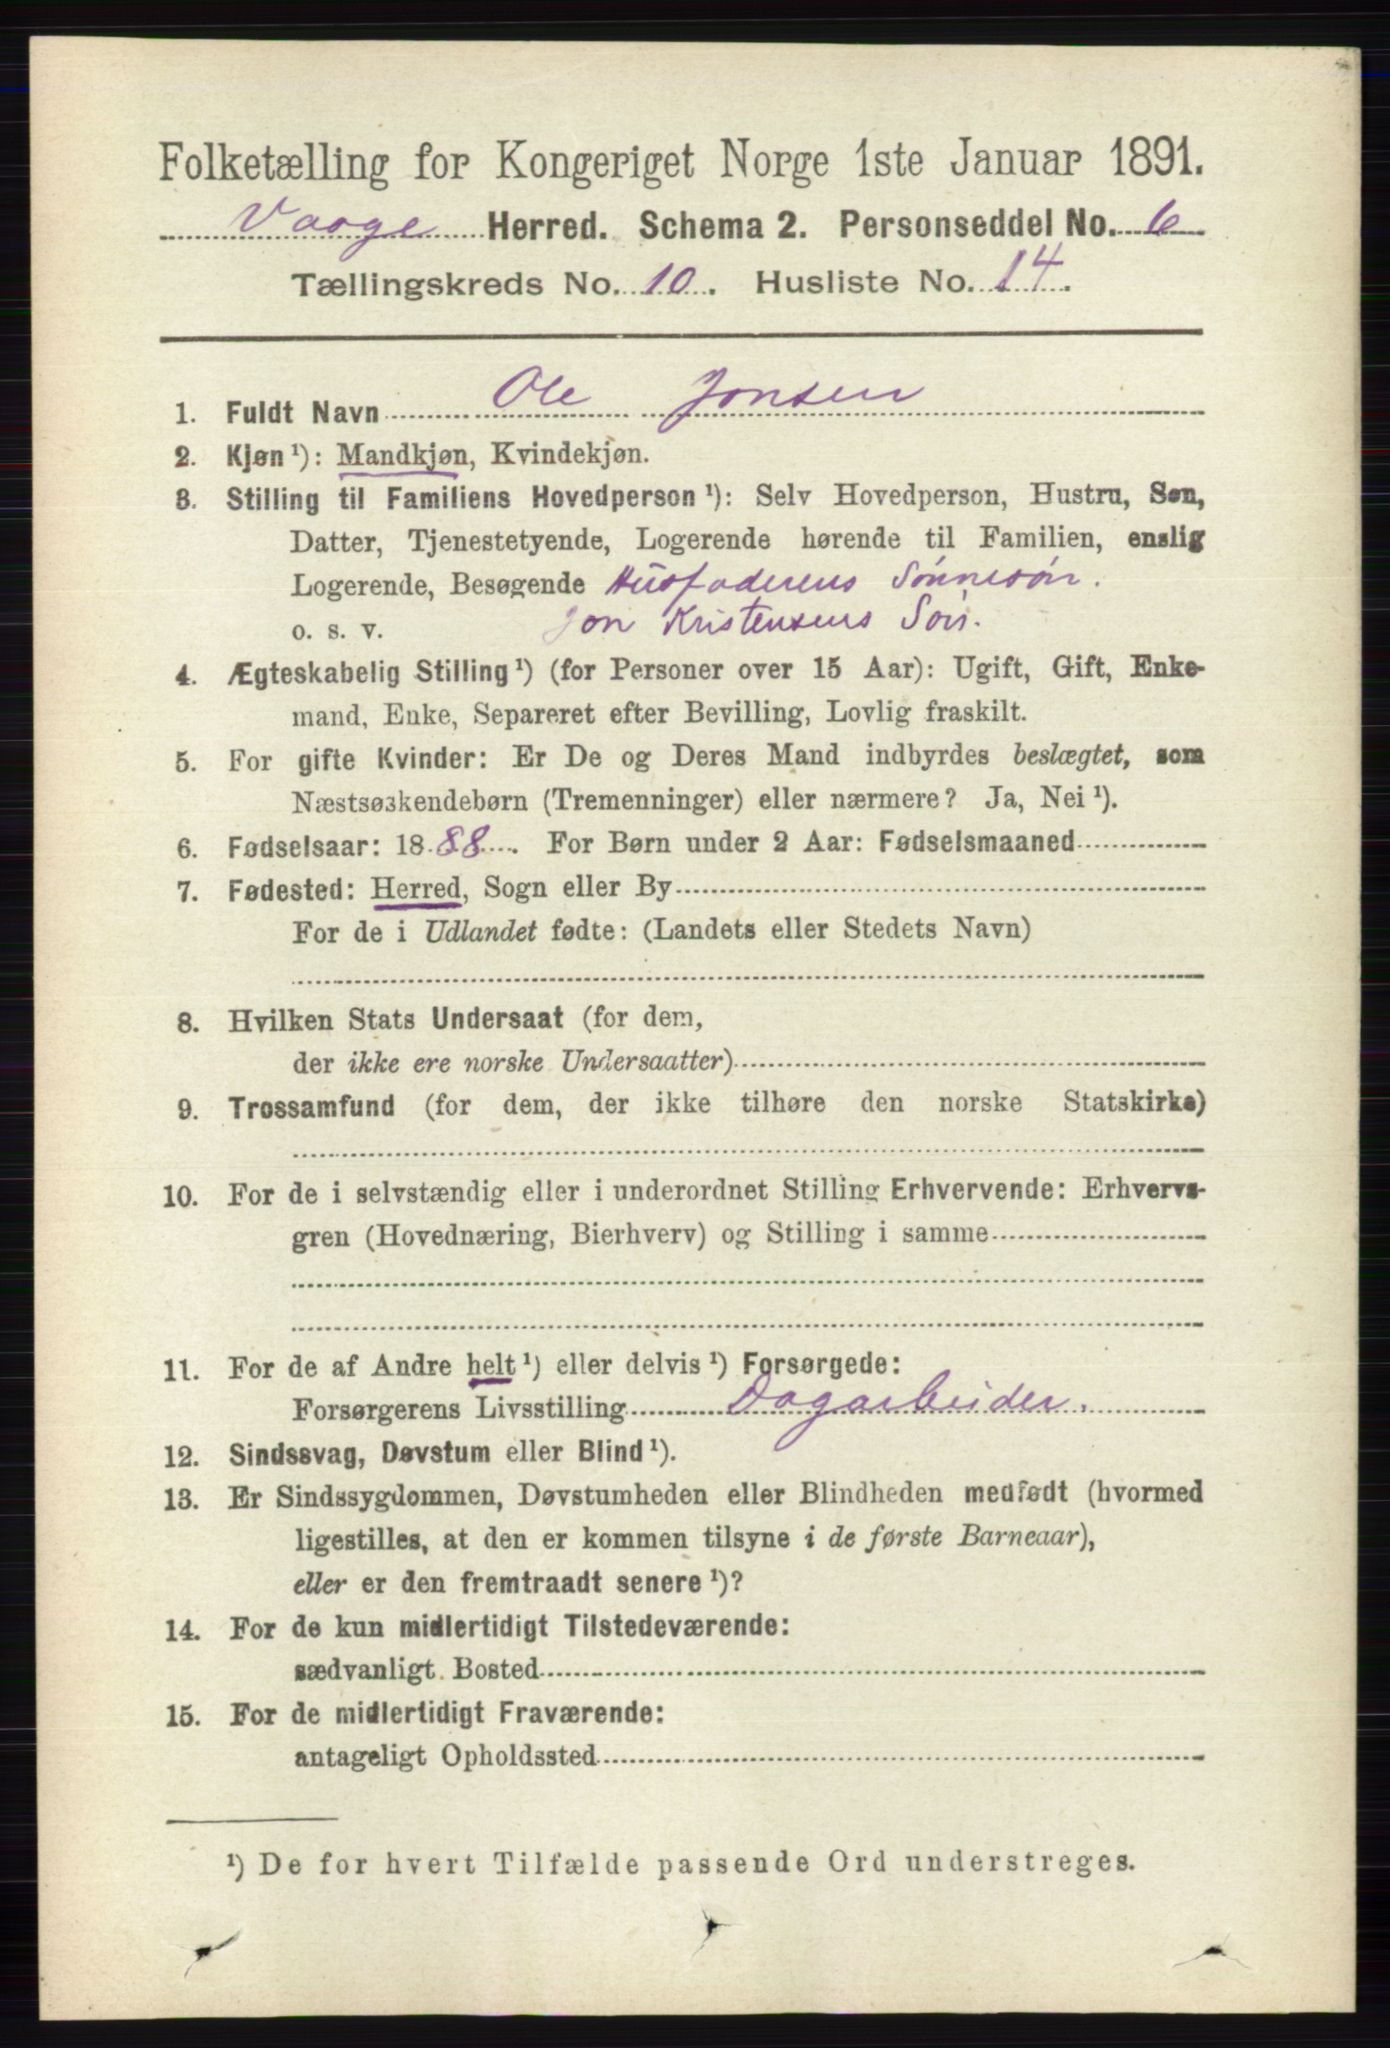 Folketælling for Kongeriget Norge 1ste Januar 1891.
Vaage Herred. Schema 2. Personseddel No. 6
Tællingskreds No. 10. Husliste No. 14.
1. Fuldt Navn Ole Jonsen
2. Kjøn ¹): Mandkjøn, Kvindekjøn.
3. Stilling til Familiens Hovedperson ¹): Selv Hovedperson, Hustru, Søn,
Datter, Tjenestetyende, Logerende hørende til Familien, enslig
Logerende, Besøgende Husfaderens Sønnesøn.
o. s. v. Jon Kristensens Søn.
4. Ægteskabelig Stilling ¹) (for Personer over 15 Aar): Ugift, Gift, Enke-
mand, Enke, Separeret efter Bevilling, Lovlig fraskilt.
5. For gifte Kvinder: Er De og Deres Mand indbyrdes beslægtet, som
Næstsøskendebørn (Tremenninger) eller nærmere? Ja, Nei ¹).
6. Fødselsaar: 1888. For Børn under 2 Aar: Fødselsmaaned
7. Fødested: Herred, Sogn eller By
For de i Udlandet fødte: (Landets eller Stedets Navn)
8. Hvilken Stats Undersaat (for dem,
der ikke ere norske Undersaatter)
9. Trossamfund (for dem, der ikke tilhøre den norske Statskirke)
10. For de i selvstændig eller i underordnet Stilling Erhvervende: Erhvervs-
gren (Hovednæring, Bierhverv) og Stilling i samme
11. For de af Andre helt ¹) eller delvis ¹) Forsørgede:
Forsørgerens Livsstilling Dagarbeider.
12. Sindssvag, Døvstum eller Blind ¹).
13. Er Sindssygdommen, Døvstumheden eller Blindheden medfødt (hvormed
ligestilles, at den er kommen tilsyne i de første Barneaar),
eller er den fremtraadt senere ¹)?
14. For de kun midlertidigt Tilstedeværende:
sædvanligt Bosted
15. For de midlertidigt Fraværende:
antageligt Opholdssted
¹) De for hvert Tilfælde passende Ord understreges.